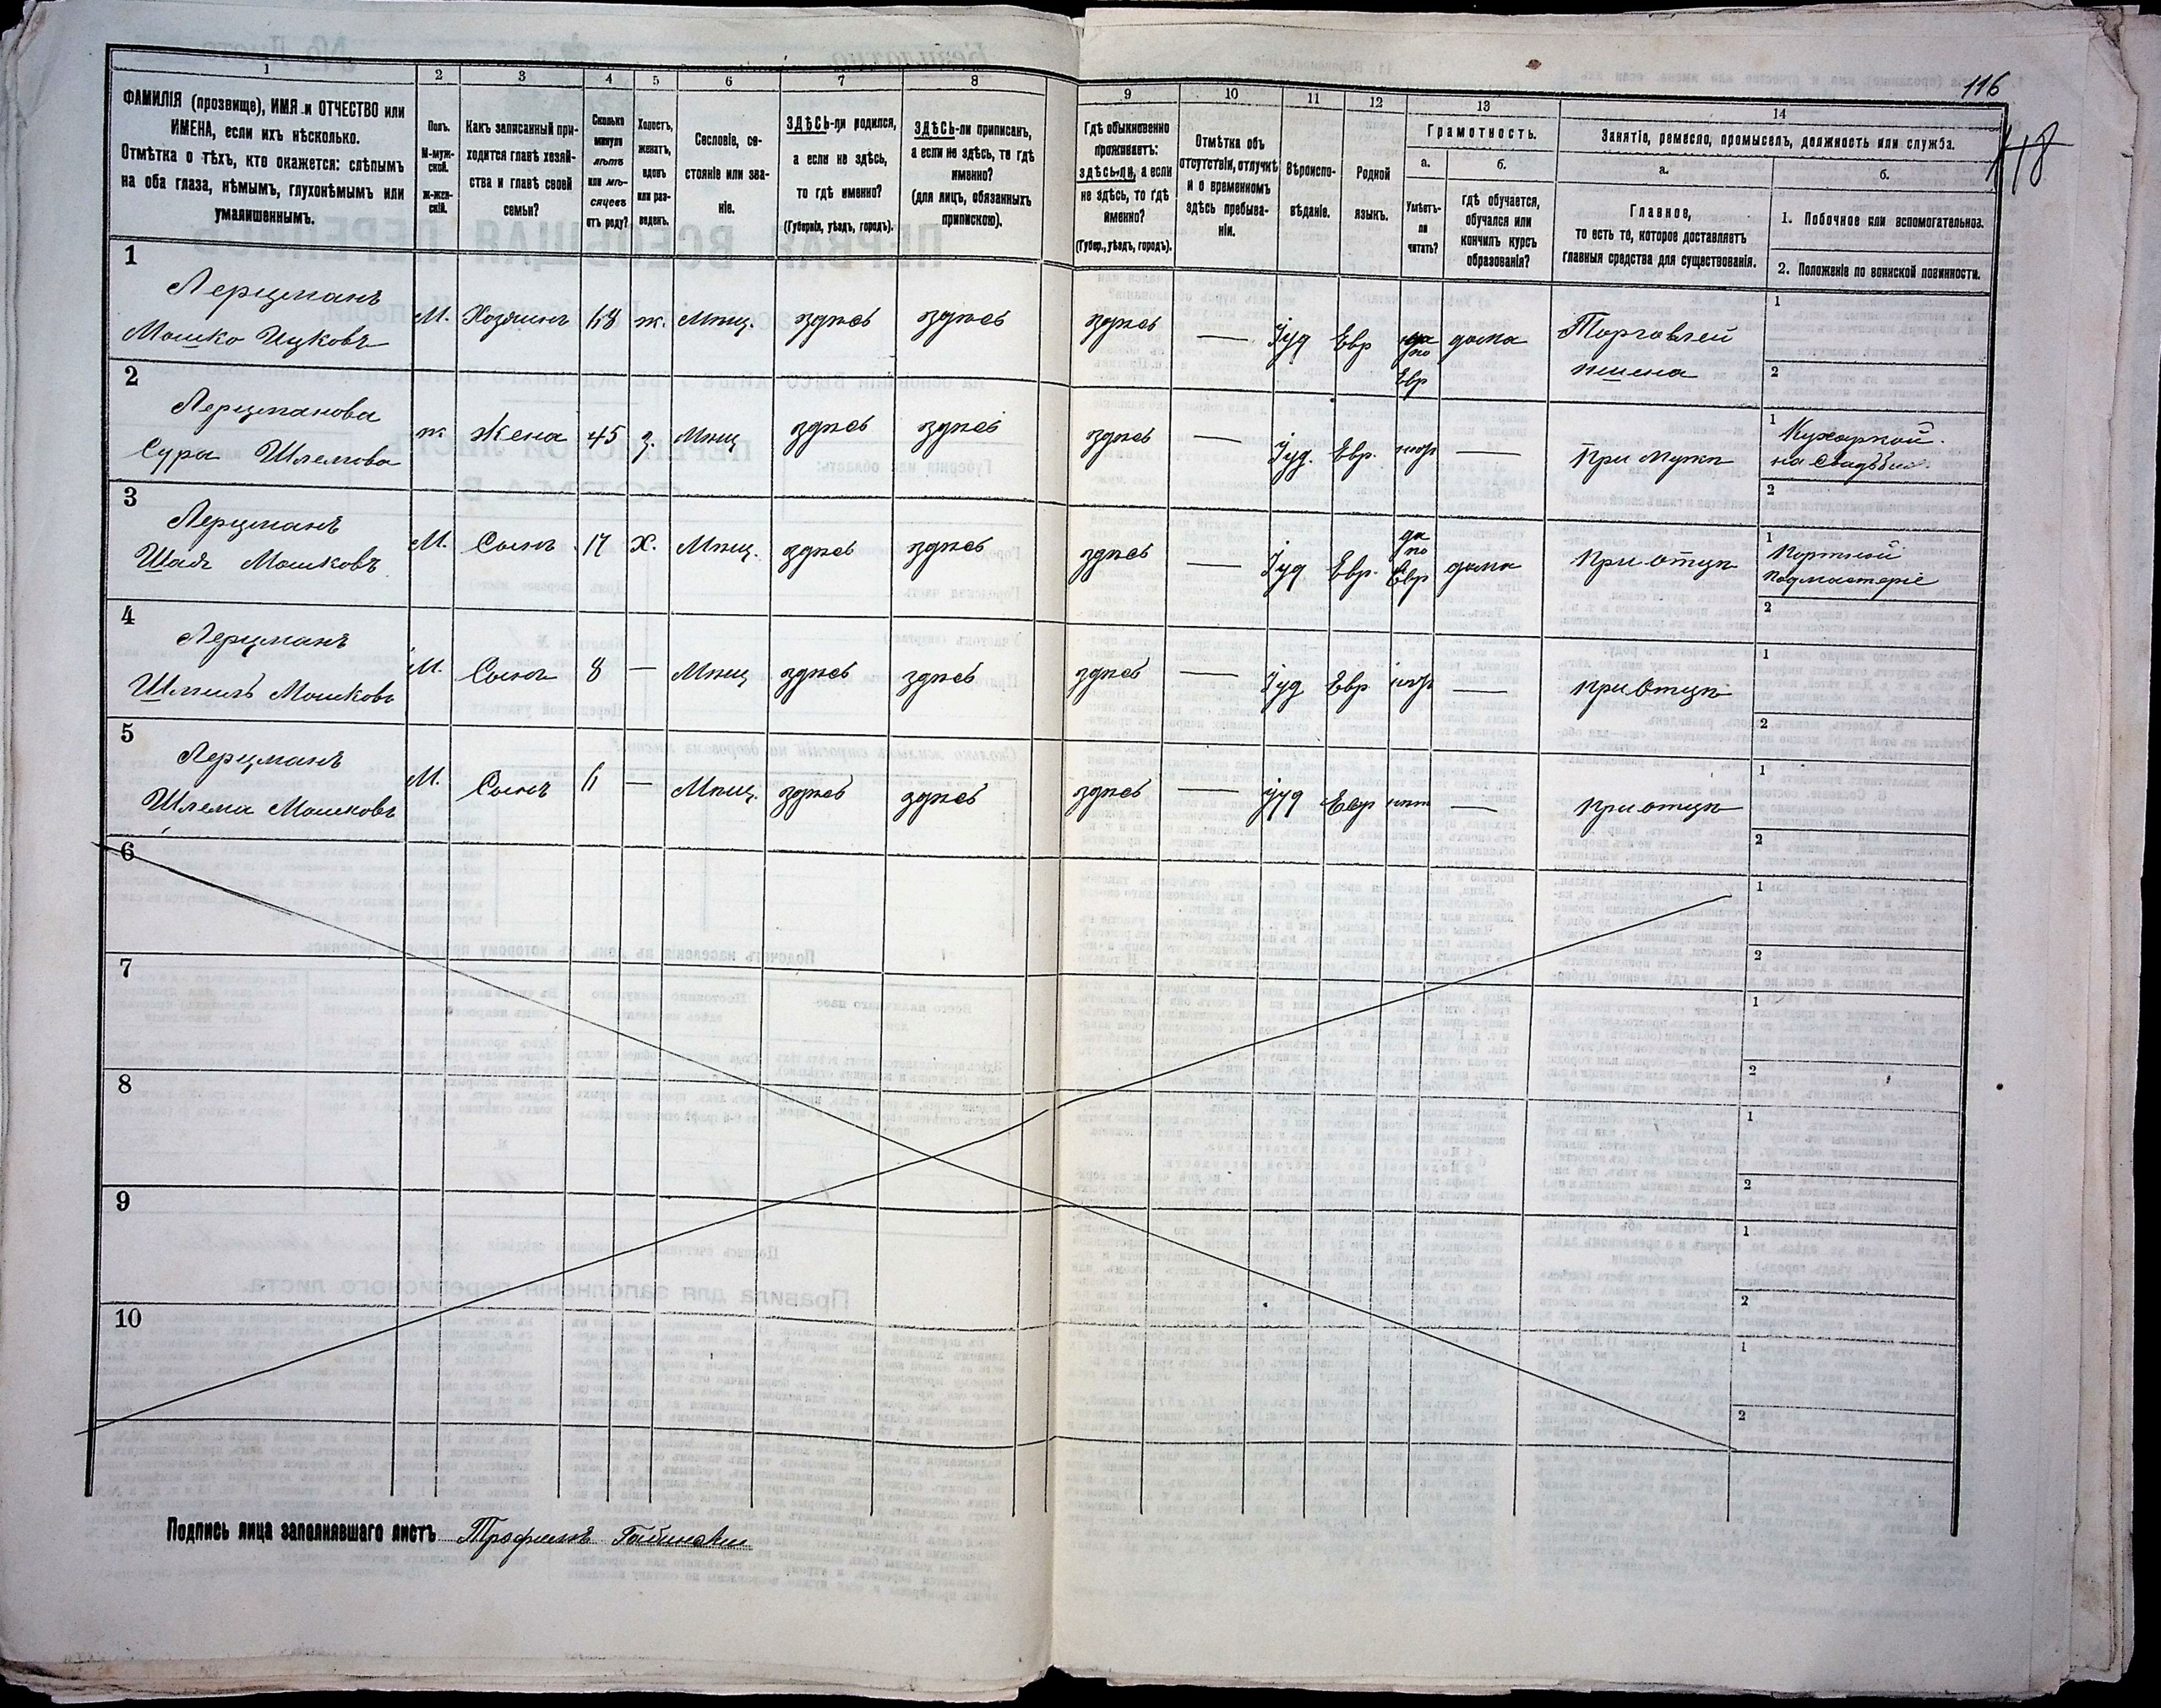 116
118
1 2 3 4 5 6 7 8 9 10 11 12 13 14
ФАМИЛІЯ (прозвище), ИМЯ и ОТЧЕСТВО или
ИМЕНА, если ихъ нѣсколько.
Отмѣтка о тѣхъ, кто окажется: слѣпымъ
на оба глаза, нѣмымъ, глухонѣмымъ или
умалишеннымъ.
Полъ.
М-муж-
ской.
Ж-жен-
скій.
Какъ записанный при-
ходится главѣ хозяй-
ства и главѣ своей
семьи?
Сколько
минуло
лѣтъ
или мѣ-
сяцевъ
отъ роду?
Холостъ,
женатъ,
вдовъ
или раз-
веденъ.
Сословіе, со-
стояніе или зва-
ніе.
ЗДѢСЬ-ли родился,
а если не здѣсь,
то гдѣ именно?
(Губернія, уѣздъ, городъ).
ЗДѢСЬ-ли приписанъ,
а если не здѣсь, то гдѣ
именно?
(для лицъ, обязанныхъ
припискою).
Гдѣ обыкновенно
проживаетъ:
здѣсь-ли, а если
не здѣсь, то гдѣ
именно?
(Губер., уѣздъ, городъ).
Отмѣтка объ
отсутствіи, отлучкѣ
и о временномъ
здѣсь пребыва-
ніи.
Вѣроиспо-
вѣданіе.
Родной
языкъ.
Грамотность.
а. б.
Умѣетъ-
ли
читать?
Гдѣ обучается,
обучался или
кончилъ курсъ
образованія?
Занятіе, ремесло, промыселъ, должность или служба.
а. б.
Главное,
то есть то, которое доставляетъ
главныя средства для существованія.
1. Побочное или вспомогательное.
2. Положеніе по воинской повинности.
1
Лерцманъ
Мошко Ицковъ М. Хозяинъ 68 ж. Мѣщ. здѣсь здѣсь здѣсь — Іуд Евр да по Евр дома Торговлей пшена
1
2
2
Лерцманова
Сура Шлемова ж Жена 45 з. Мѣщ здѣсь здѣсь здѣсь — Іуд. Евр. нѣтъ — при мужѣ
1 Кухаркой
на свадьбахъ
2
3
Лерцманъ
Шая Мошковъ М. Сынъ 17 Х. Мѣщ. здѣсь здѣсь здѣсь — Іуд Евр. да по Евр дома при отцѣ
1 Портной
подмастеріе
2
4
Лерцманъ
Шмиль Мошковъ М. Сынъ 8 — Мѣщ здѣсь здѣсь здѣсь — Іуд Евр нѣтъ — при отцѣ
1
2
5
Лерцманъ
Шлема Мошковъ М. Сынъ 6 — Мѣщ. здѣсь здѣсь здѣсь — Іуд Евр нѣтъ — при отцѣ
1
2
6
1
2
7
1
2
8
1
2
9
1
2
10
1
2
Подпись лица заполнявшаго листъ Трофимъ